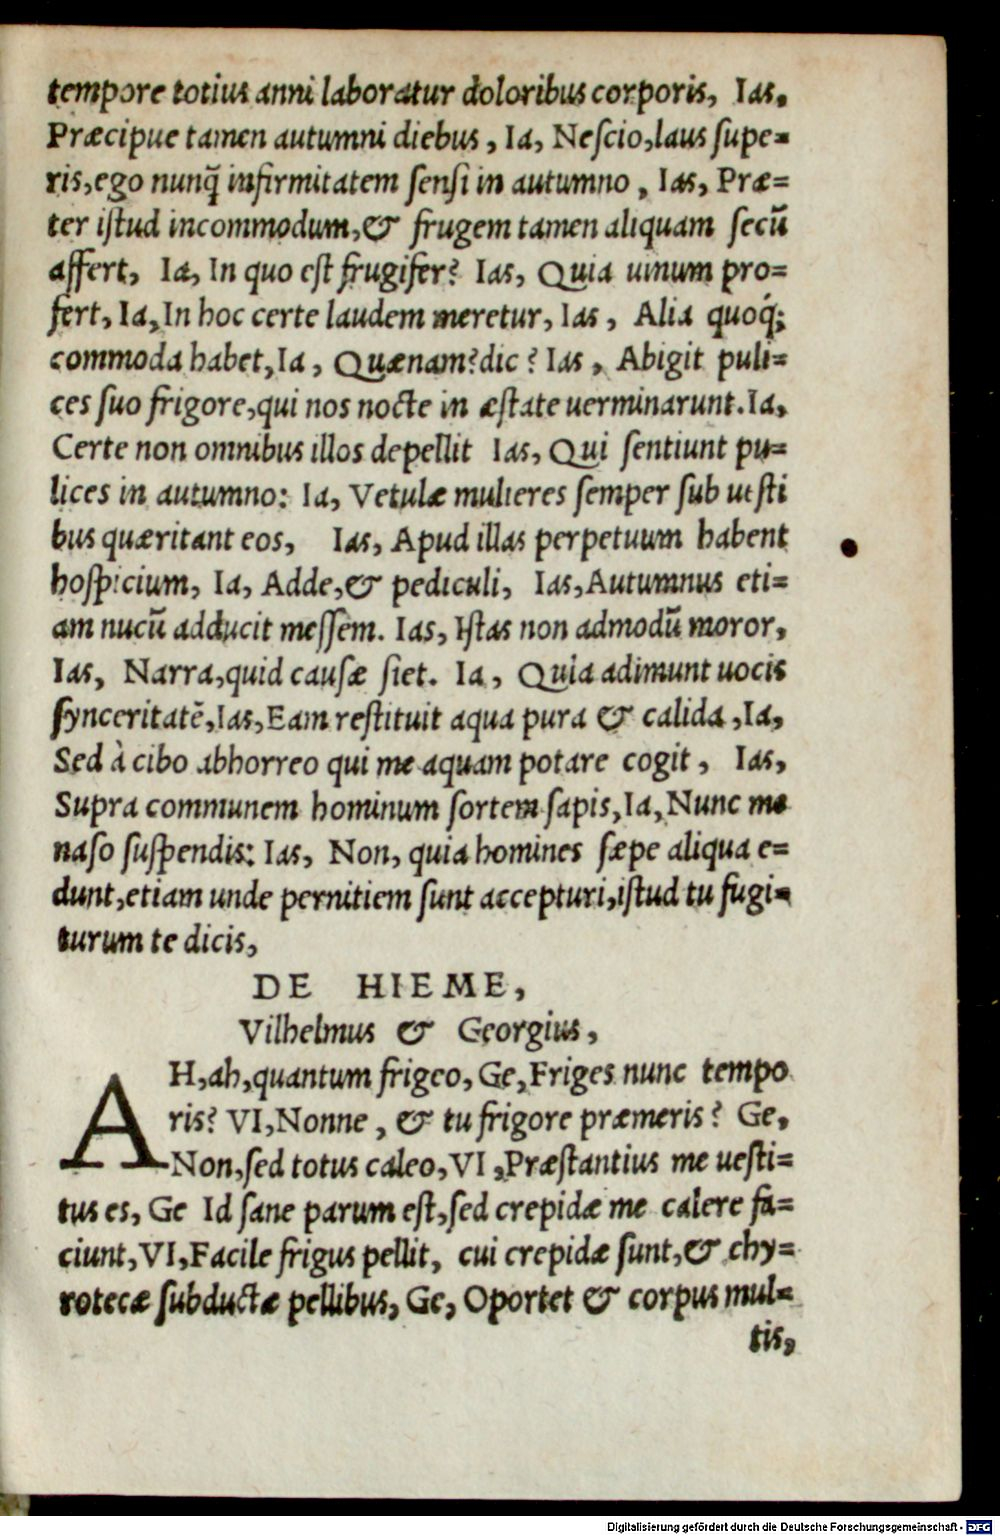 tempore totius anni laboratur doloribus corporis, Ias,
Præcipue tamen autumni diebus, Ia, Nescio, laus supe=
ris, ego nunq̃ infirmitatem sensi in autumno, Ias, Præ=
ter istud incommodum, & frugem tamen aliquam secū
affert, Ia, In quo est frugifer? Ias, Quia uinum pro=
fert, Ia, In hoc certe laudem meretur, Ias, Alia quoq́;
commoda habet, Ia, Quænam? dic? Ias, Abigit puli=
ces suo frigore, qui nos nocte in æstate uerminarunt. Ia,
Certe non omnibus illos depellit Ias, Qui sentiunt pu=
lices in autumno: Ia, Vetulæ mulieres semper sub uesti
bus quæritant eos, Ias, Apud illas perpetuum habent
hospicium, Ia, Adde, & pediculi, Ias, Autumnus eti=
am nucū adducit messem. Ias, Istas non admodū moror,
Ias, Narra, quid causæ siet. Ia, Quia adimunt uocis
synceritatē, Ias, Eam restituit aqua pura & calida, Ia,
Sed à cibo abhorreo qui me aquam potare cogit, Ias,
Supra communem hominum sortem sapis, Ia, Nunc me
naso suspendis: Ias, Non, quia homines sæpe aliqua e=
dunt, etiam unde pernitiem sunt accepturi, istud tu fugi=
turum te dicis,
DE HIEME,
Vilhelmus & Georgius,
AH, ah, quantum frigeo, Ge, Friges nunc tempo
ris? VI, Nonne, & tu frigore præmeris? Ge,
Non, sed totus caleo, VI, Præstantius me uesti=
tus es, Ge Id sane parum est, sed crepidæ me calere fa=
ciunt, VI, Facile frigus pellit, cui crepidæ sunt, & chy=
rotecæ subductæ pellibus, Ge, Oportet & corpus mul=
tis,
Digitalisierung gefördert durch die Deutsche Forschungsgemeinschaft - DFG